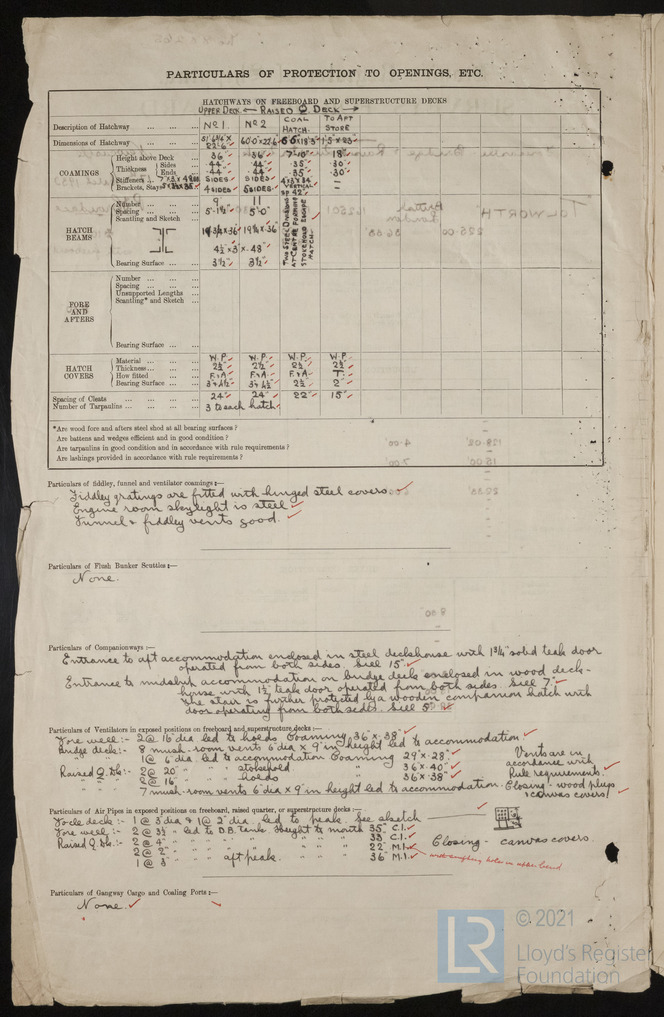 PARTICULARS OF PROTECTION TO OPENINGS, ETC.
HATCHWAYS ON FREEBOARD AND SUPERSTRUCTURE DECKS
UPPER DECK ← RAISED Q. DECK →
Description of Hatchway ... ... ... No 1. No 2 COAL HATCH. TO AFT STORE
Dimensions of Hatchway ... ... ... 22'-6" 60'0" x 22'6"
COAMINGS
Height above Deck ... 36" 36" 7'-10" 18"
Thickness Sides .44" .44" .35" .30"
Ends .44" .44" .35" .30"
Stiffeners SIDES SIDES
Brackets, Stays 4 SIDES 5 SIDES VERTICAL
HATCH BEAMS
Number ... ... ... 9 11
Spacing ... ... ... 5'-1½" 5'0"
Scantling and Sketch
4½ x 3 x .48"
Bearing Surface ... ... 3½" 3½"
TWO STEEL DIVISIONS AT CENTRE FORMING STOKEHOLD ESCAPE HATCH.
FORE AND AFTERS
Number ... ... ...
Spacing ... ... ...
Unsupported Lengths ...
Scantling* and Sketch ...
Bearing Surface ... ...
HATCH COVERS
Material ... ... ... W.P. W.P. W.P. W.P.
Thickness ... ... ... 2½" 2½" 2½" 2½"
How fitted ... ... F.&A. F.&A. F.&A. T.
Bearing Surface ... ... 3" & 4½" 3" & 4½" 2½" 2"
Spacing of Cleats ... ... ... ... 24" 24" 22" 15"
Number of Tarpaulins ... ... ... ... 3 to each hatch.
*Are wood fore and afters steel shod at all bearing surfaces ?
Are battens and wedges efficient and in good condition ?
Are tarpaulins in good condition and in accordance with rule requirements ?
Are lashings provided in accordance with rule requirements ?
Particulars of fiddley, funnel and ventilator coamings :—
Fiddley gratings are fitted with hinged steel covers
Engine room skylight is steel
Funnel & fiddley vents good.
Particulars of Flush Bunker Scuttles :—
None.
Particulars of Companionways :—
Entrance to aft accommodation enclosed in steel deckhouse with 1¾" solid teak door
operated from both sides. Sill 15"
Entrance to midship accommodation on bridge deck enclosed in wood deck-
house with 1½" teak door operated from both sides. Sill 7"
The stair is further protected by a wooden companion hatch with
door operating from both sides. Sill 5"
Particulars of Ventilators in exposed positions on freeboard and superstructure decks :—
Fore well :- 2 @ 16" dia led to holds Coaming 36" x .38"
Bridge deck :- 8 mush-room vents 6" dia x 9" in height led to accommodation
1 @ 6" dia. led to accommodation Coaming 29" x .28"
Raised Q. Dk :- 2 @ 20" " " stokehold 36" x .40"
" " " 2 @ 16" " " holds 36" x .38"
7 mush-room vents 6" dia x 9" in height led to accommodation.
Vents are in
accordance with
Rule requirements.
Closing - wood plugs
& canvas covers
Particulars of Air Pipes in exposed positions on freeboard, raised quarter, or superstructure decks :—
Fo'cle deck :- 1 @ 3" dia & 1 @ 2" dia. led to peak. See sketch
Fore well :- 2 @ 3½" " led to D.B. tank. Height to mouth 35" C.I.
Raised Q. Dk. :- 2 @ 4" " " " " " " " 33" C.I.
2 @ 2" " " " " " " " 22" M.I.
1 @ 3" " " aft peak. " " " 36" M.I.
Closing - canvas covers
Particulars of Gangway Cargo and Coaling Ports :—
None.
LR
© 2021
Lloyd's Register
Foundation